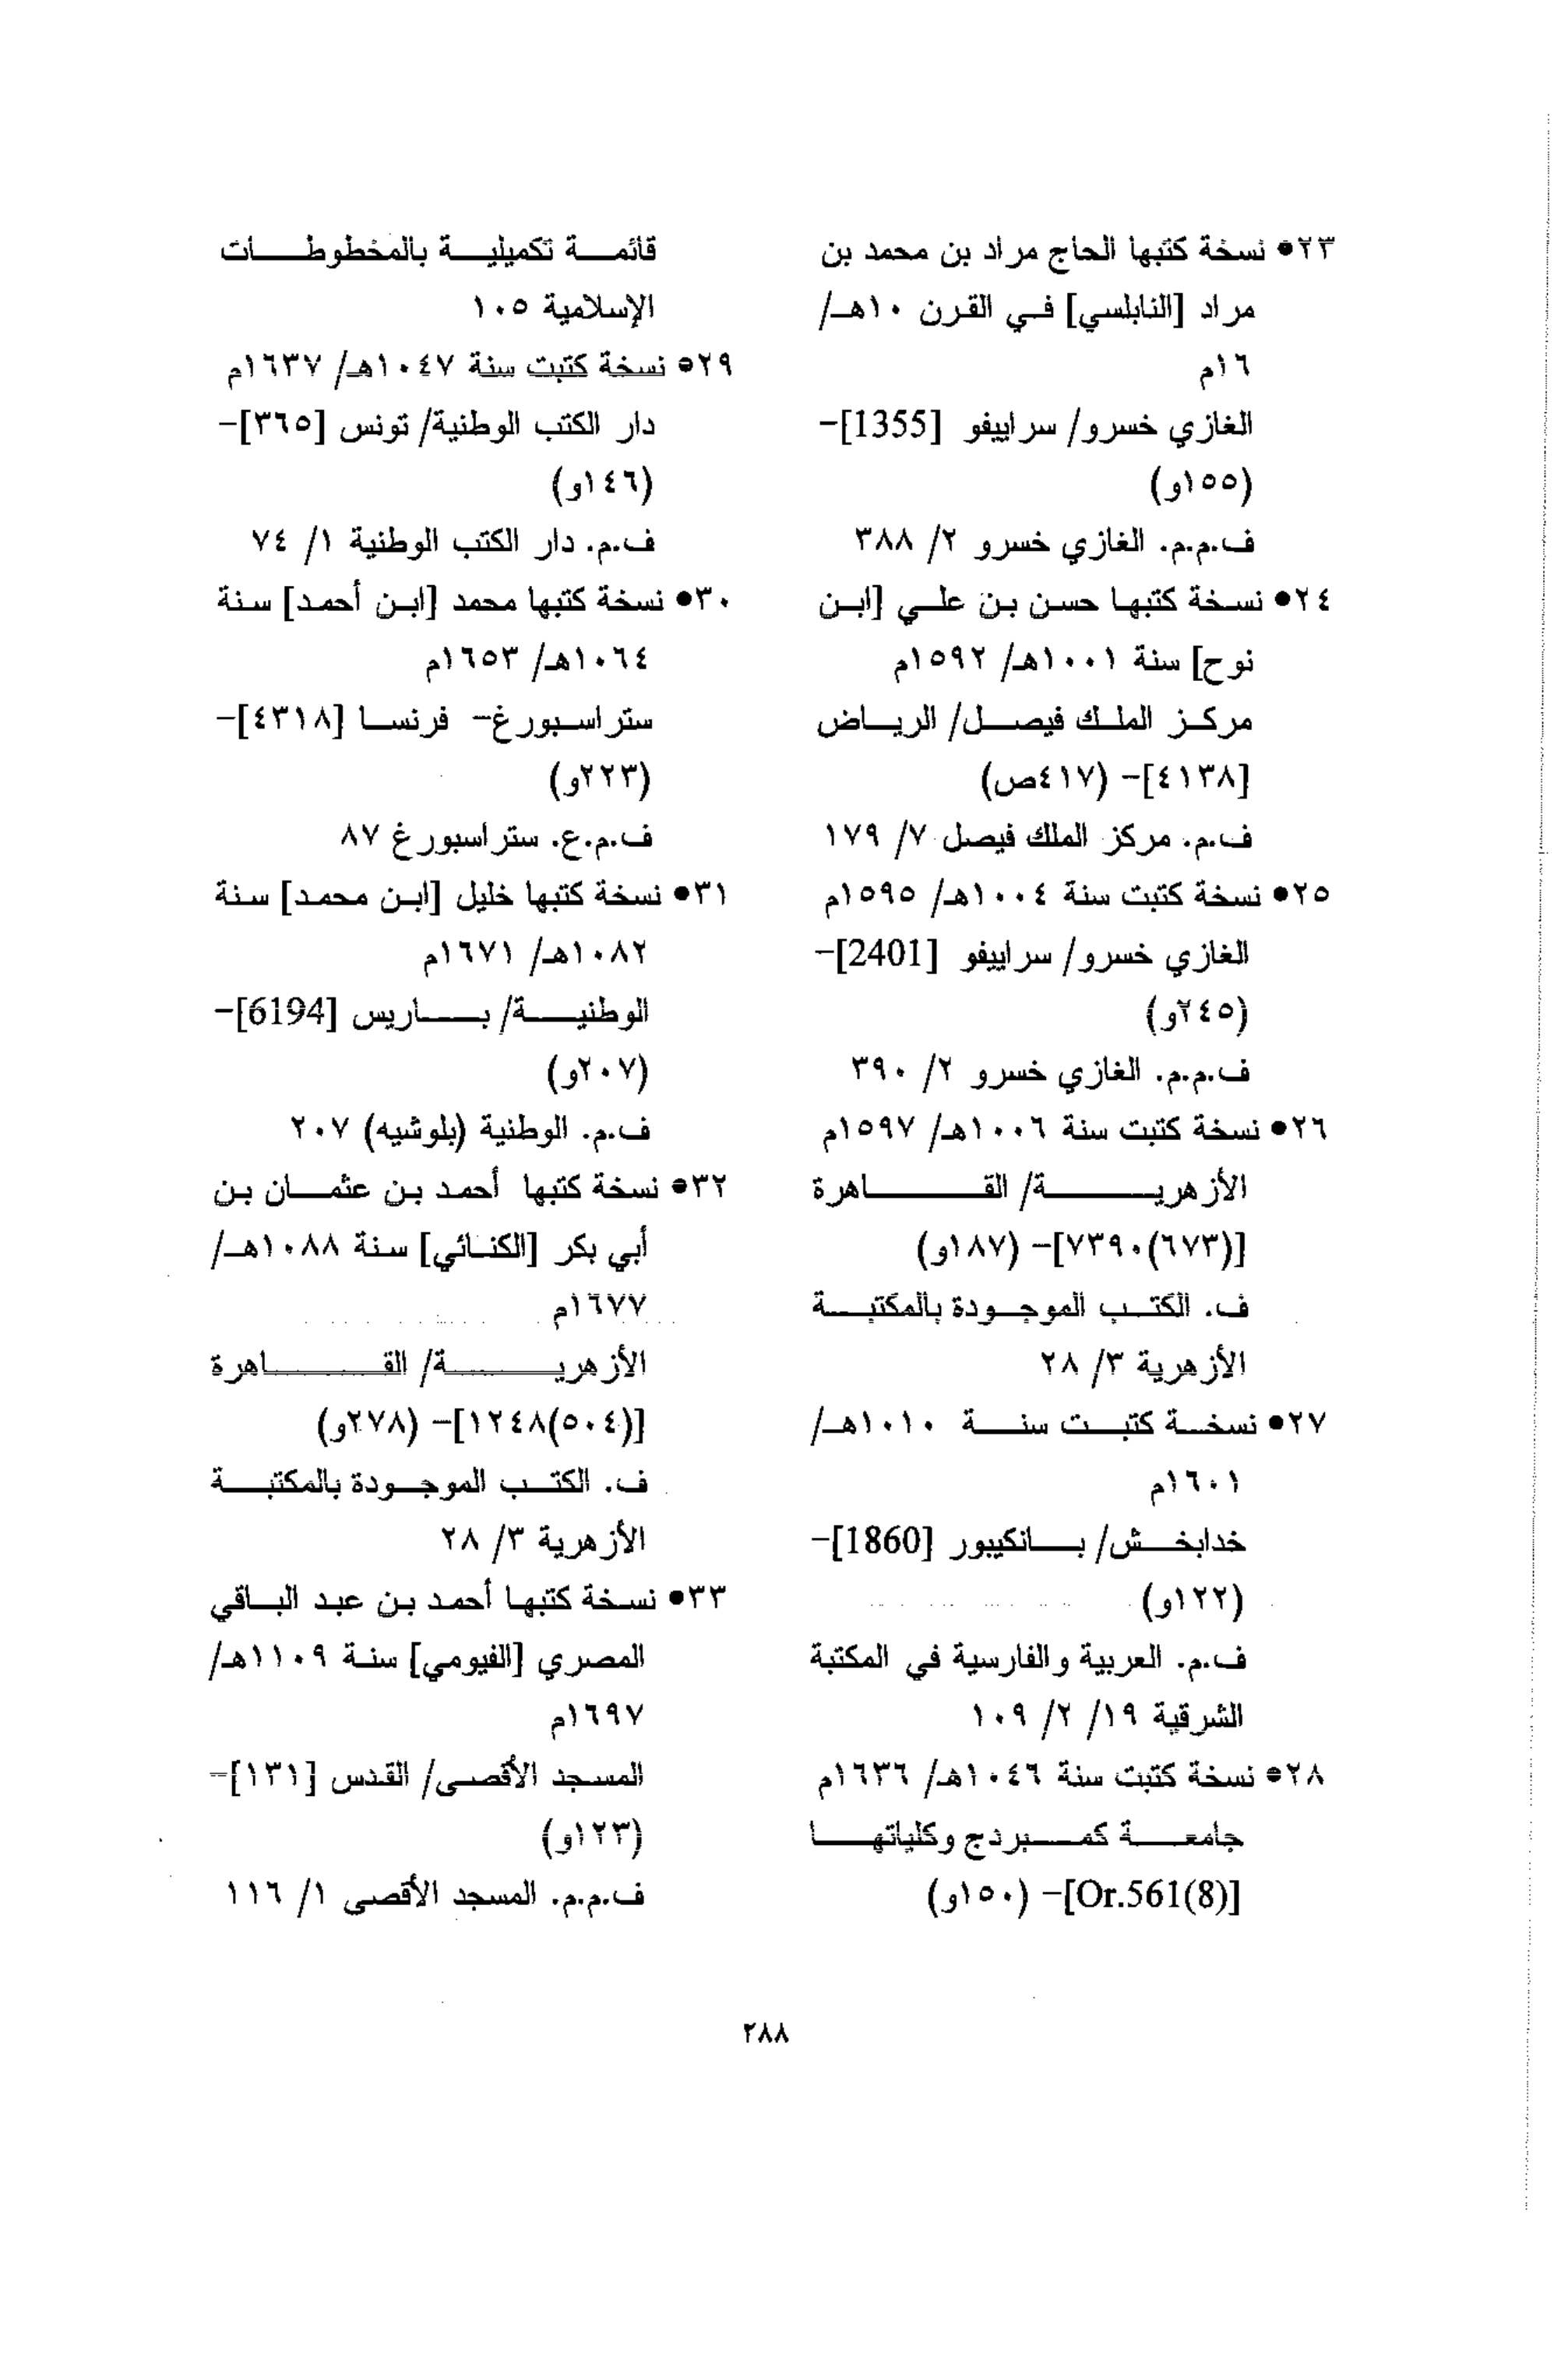 ٢٣• نسخة كتبها الحاج مراد بن محمد بن
مراد [النابلسي] في القرن ١٠هـ/
١٦م
الغازي خسرو/ سراييفو [1355]-
(١٥٥و)
ف.م.م. الغازي خسرو ٢/ ٣٨٨
٢٤• نسخة كتبها حسن بن علي [ابن
نوح] سنة ١٠٠١هـ/ ١٥٩٢م
مركز الملك فيصل/ الرياض
[٤١٣٨]- (٤١٧ص)
ف.م. مركز الملك فيصل ٧/ ١٧٩
٢٥• نسخة كتبت سنة ١٠٠٤هـ/ ١٥٩٥م
الغازي خسرو/ سراييفو [2401]-
(٢٤٥و)
ف.م.م. الغازي خسرو ٢/ ٣٩٠
٢٦• نسخة كتبت سنة ١٠٠٦هـ/ ١٥٩٧م
الأزهرية/ القاهرة
[(٦٧٣)٧٣٩٠]- (١٨٧و)
ف. الكتب الموجودة بالمكتبة
الأزهرية ٣/ ٢٨
٢٧• نسخة كتبت سنة ١٠١٠هـ/
١٦٠١م
خدابخش/ بانكيبور [1860]-
(١٢٢و)
ف.م. العربية والفارسية في المكتبة
الشرقية ١٩/ ٢/ ١٠٩
٢٨• نسخة كتبت سنة ١٠٤٦هـ/ ١٦٣٦م
جامعة كمبردج وكلياتها
[Or.561(8)]- (١٥٠و)
قائمة تكميلية بالمخطوطات
الإسلامية ١٠٥
٢٩• نسخة كتبت سنة ١٠٤٧هـ/ ١٦٣٧م
دار الكتب الوطنية/ تونس [٣٦٥]-
(١٤٦و)
ف.م. دار الكتب الوطنية ١/ ٧٤
٣٠• نسخة كتبها محمد [ابن أحمد] سنة
١٠٦٤هـ/ ١٦٥٣م
ستراسبورغ- فرنسا [٤٣١٨]-
(٢٢٣و)
ف.م.ع. ستراسبورغ ٨٧
٣١• نسخة كتبها خليل [ابن محمد] سنة
١٠٨٢هـ/ ١٦٧١م
الوطنية/ باريس [6194]-
(٢٠٧و)
ف.م. الوطنية (بلوشيه) ٢٠٧
٣٢• نسخة كتبها أحمد بن عثمان بن
أبي بكر [الكنائي] سنة ١٠٨٨هـ/
١٦٧٧م
الأزهرية/ القاهرة
[(٥٠٤)١٢٤٨]- (٢٧٨و)
ف. الكتب الموجودة بالمكتبة
الأزهرية ٣/ ٢٨
٣٣• نسخة كتبها أحمد بن عبد الباقي
المصري [الفيومي] سنة ١١٠٩هـ/
١٦٩٧م
المسجد الأقصى/ القدس [١٣١]-
(١٢٣و)
ف.م.م. المسجد الأقصى ١/ ١١٦
٢٨٨